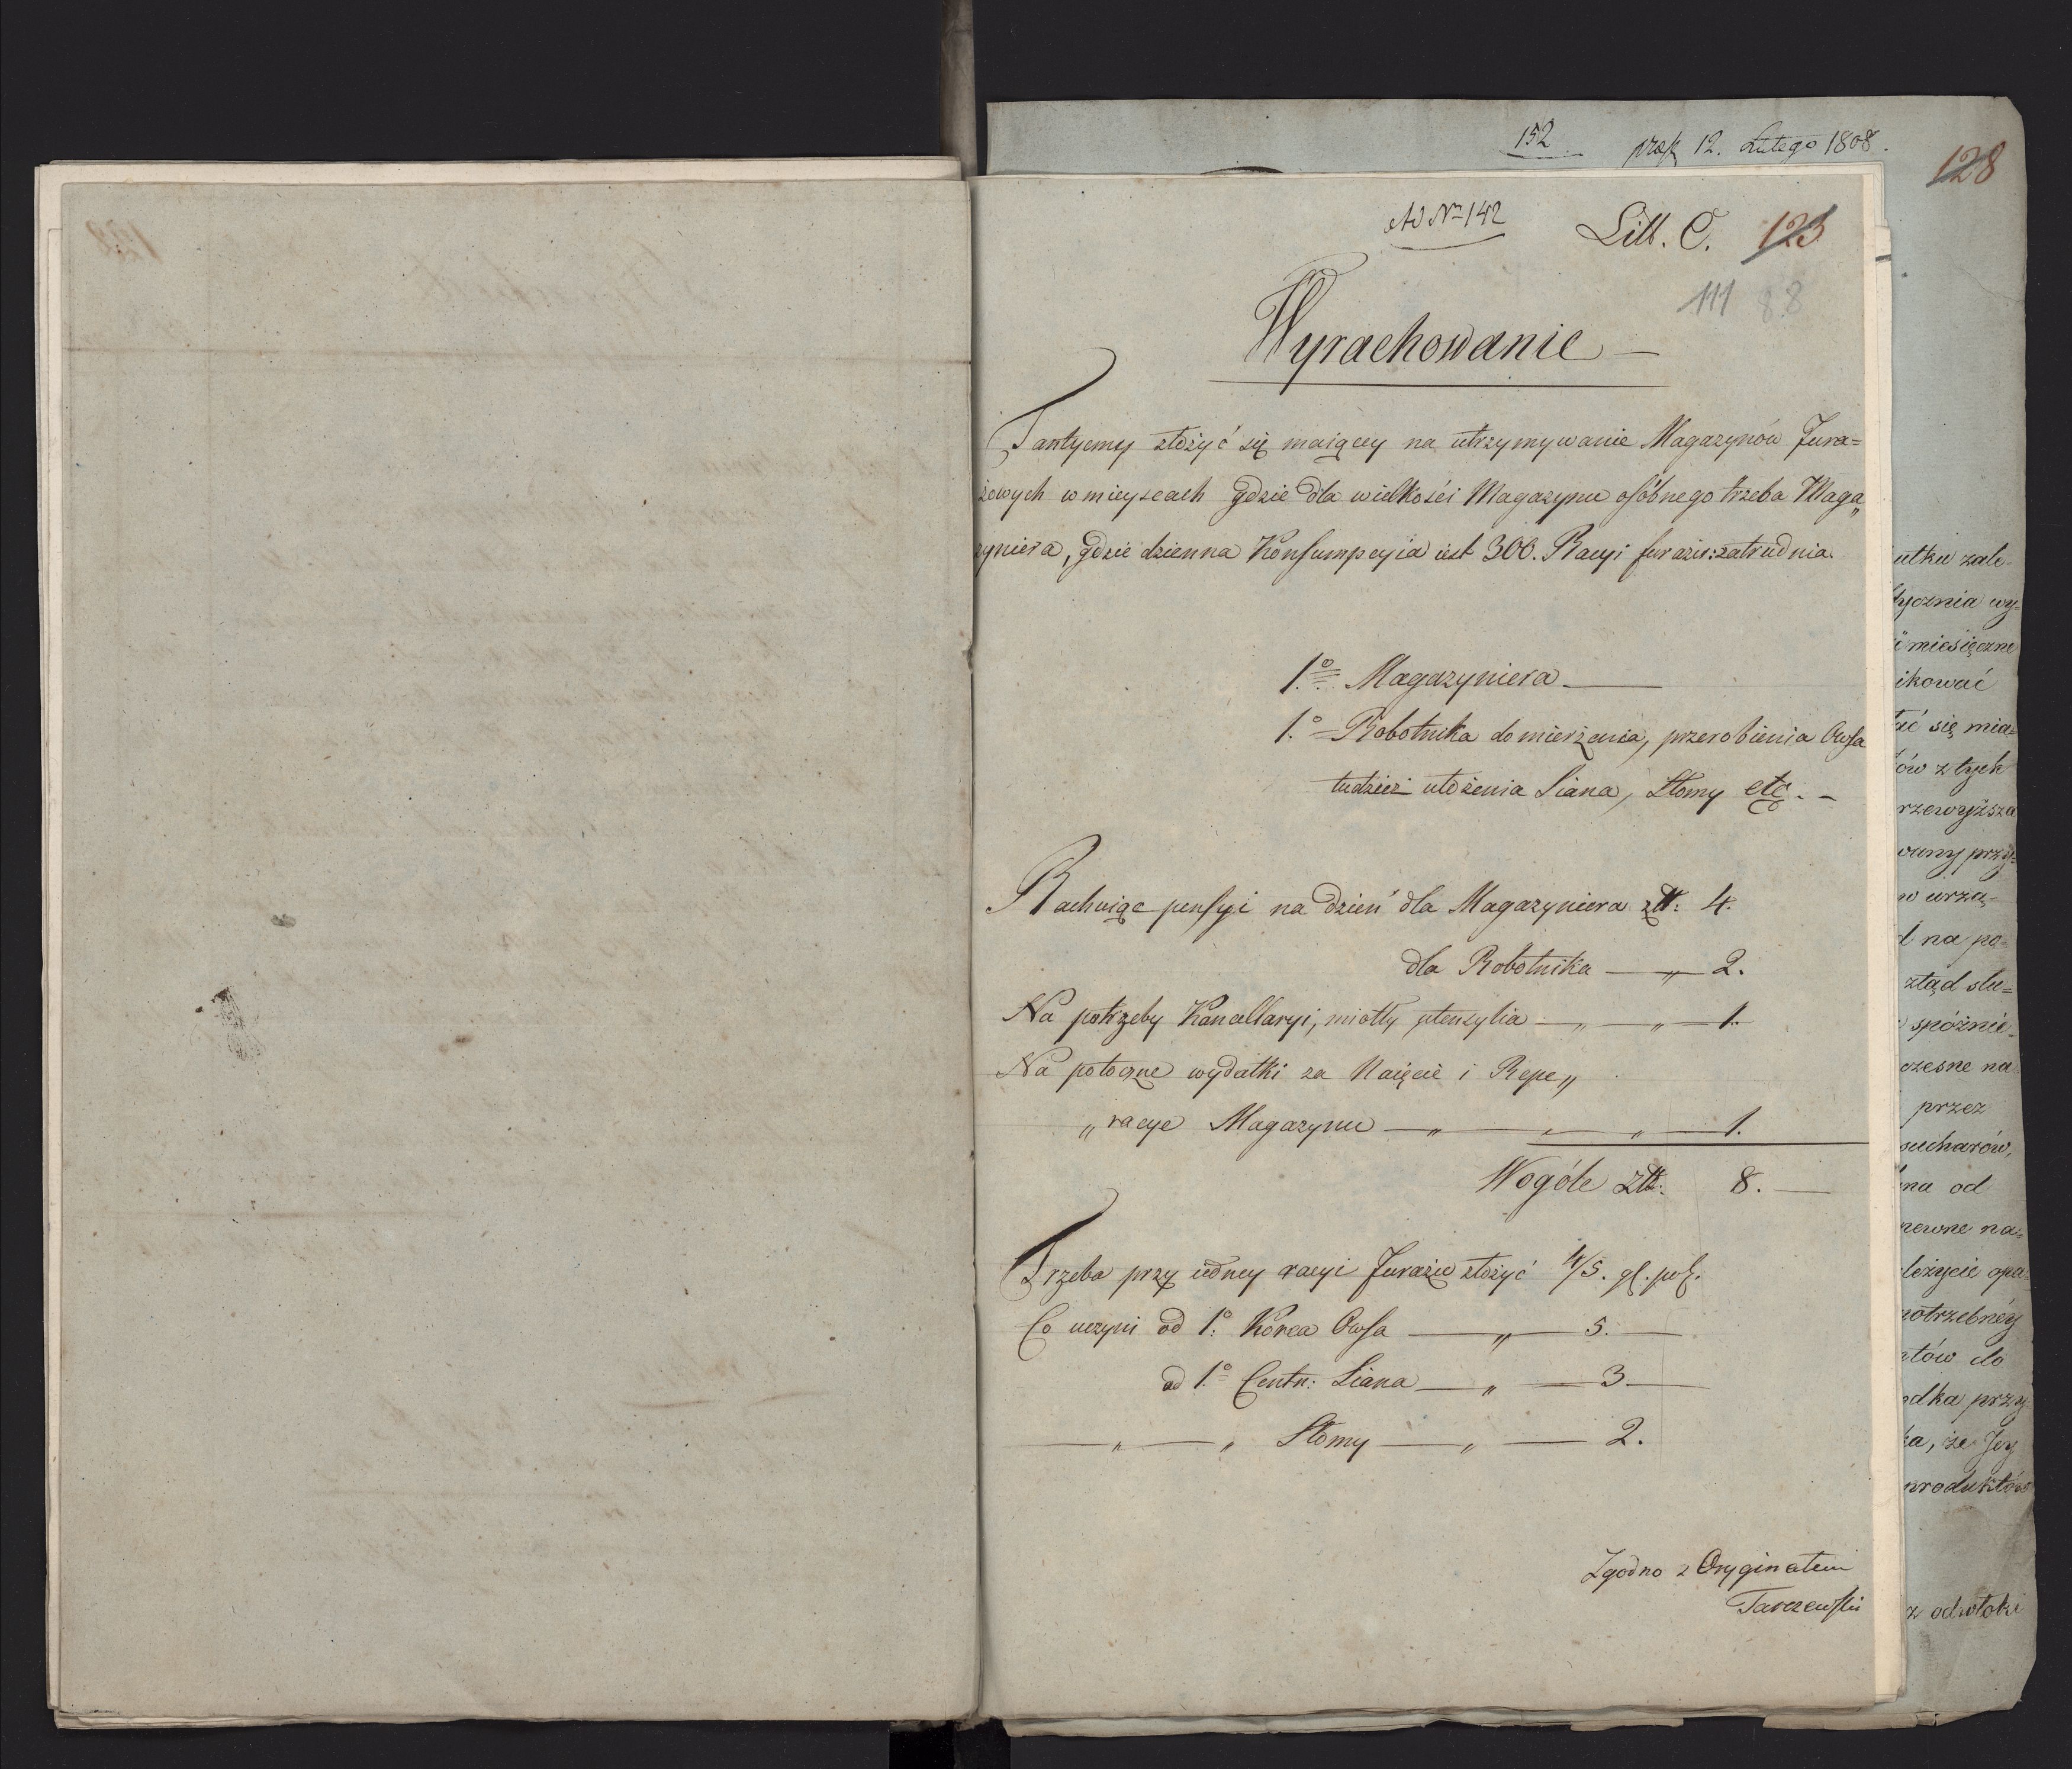 152 praes 12. Lutego 1808.
128
Ad Nr 142 Litt. C. 123
111 88
Wyrachowanie
Tantyemy złożyć się maiącey na utrzymywanie Magazynów Fura=
żowych w mieyscach gdzie dla wielkości Magazynu osóbnego trzeba Maga„
zyniera, gdzie dzienna Konsumpcyia iest 300. Racyi furażu: zatrudnia.
1o Magazyniera
1.o Robotnika do mierzenia, przerobienia Owsa
tudzież ułożenia Siana, Słomy etc. -
Rachuiąc pensyi na dzień dla Magazyniera złt: 4.
dla Robotnika — „ — 2.
Na potrzeby Kancellaryi, miotły utensylia — „ — „ — 1.
Na potoczne wydatki za Naięcie i Repe„
„racye Magazynu — „ — „ — „ — 1.
Wogóle złt: 8. —
Trzeba przy iedney racyi Furażu złożyć 4/5. gl. pol.
Co uczyni od 1o: Korca Owsa — „ — 5. —
od 1.o Centn: Siana — „ — 3 —
— „ — „ Słomy — „ — 2.
Zgodno z Oryginałem
Tarczewski
utku zale-
stycznia wy=
i miesięczne
ikować
ać się mia=
ów z tych
rzewyższa
wany przy=
w urzą-
d na po-
ztąd słu=
spóźnie-
czesne na
przez
sucharów,
na od
newne na=
leżycie opa=
potrzebnéy
tów do
odka przy
ka, że Jey
produktów
z odwłoki